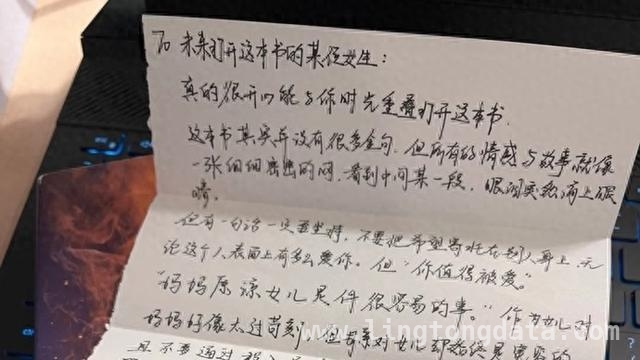 To 未来打开这本书的某位女生：
真的很开心能与你时光重叠打开这本书.
这本书其实并没有很多金句，但所有的情感与故事就像
一张细细密密的网，看到中间某一段，眼泪突然涌上眼
睛。
但有一句话一定要坚持，不要把希望寄托在别人身上，无
论这个人表面上有多么爱你。但“你值得被爱”
“妈妈原谅女儿是件很容易的事。”作为女儿对
妈妈好像太过苛刻，但母亲对女儿却
且不要通过
www.lingtongdata.com